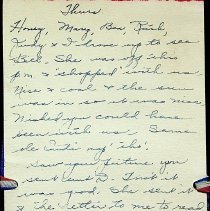 Thurs
Honey, Mary, Ben, Rich,
Judy & I drove up to see
Bill. She was off this
p.m & shopped with us.
Nice & cool & the sun
was in so it was nice.
Wished you could have
been with us. Same
ole
Saw your picture you
sent it
was good. She sent it
& the letter to me to read